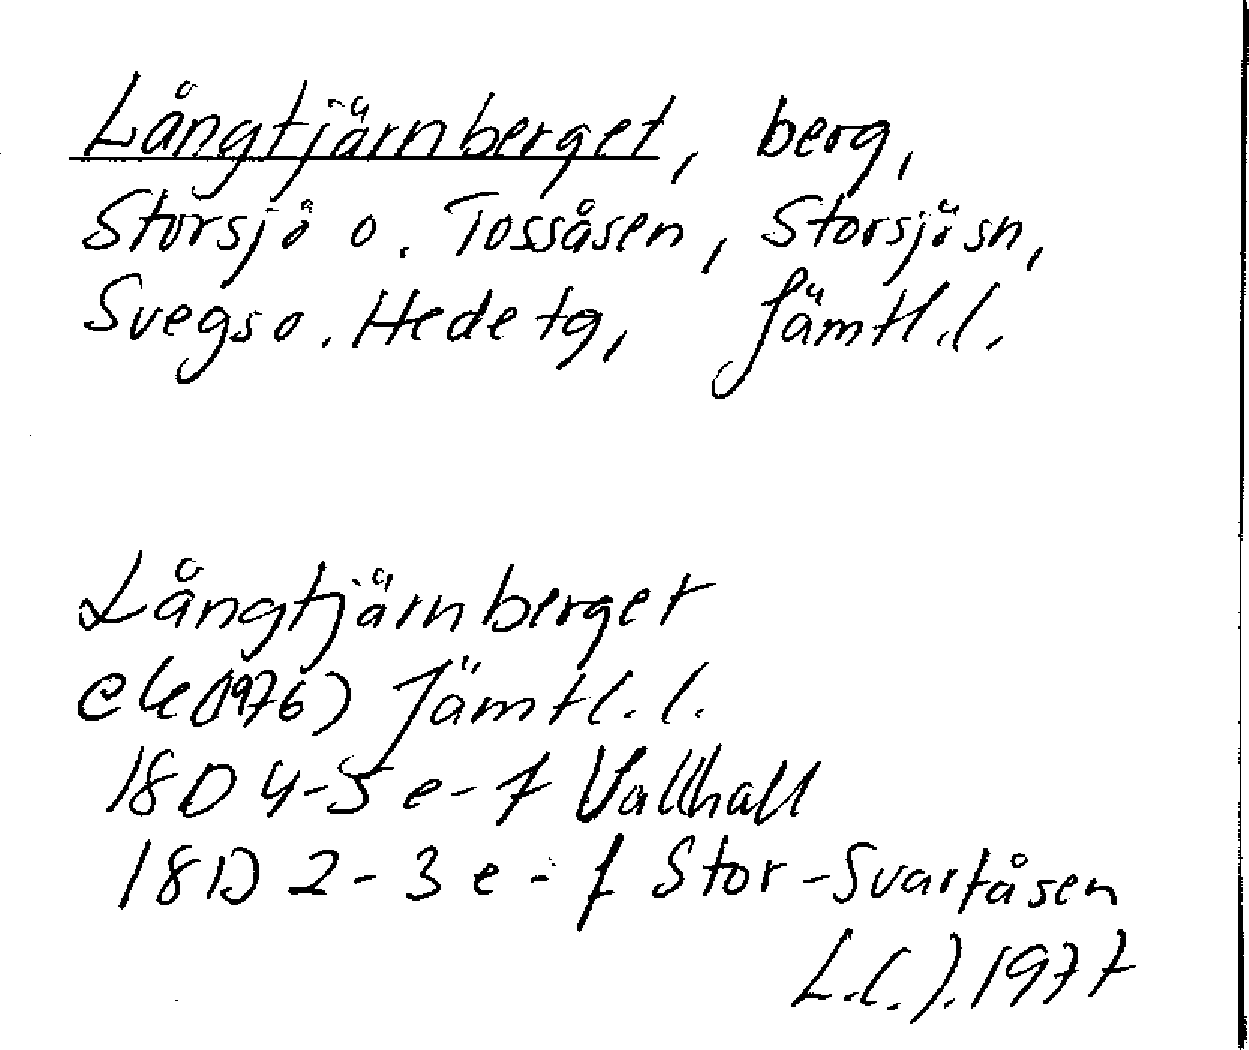 Långtjärnberget, berg,
Storsjö o. Tossåsen, Storsjö sn,
Svegs o. Hede tg, Jämtl. l.
Långtjärnberget
ek (1976) Jämtl. l.
18D 4-5 e-f Vallhall
18D 2-3 e-f Stor-Svartåsen
1977